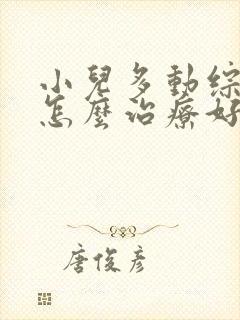 小兒多動綜
怎麼治療好
唐俊彥